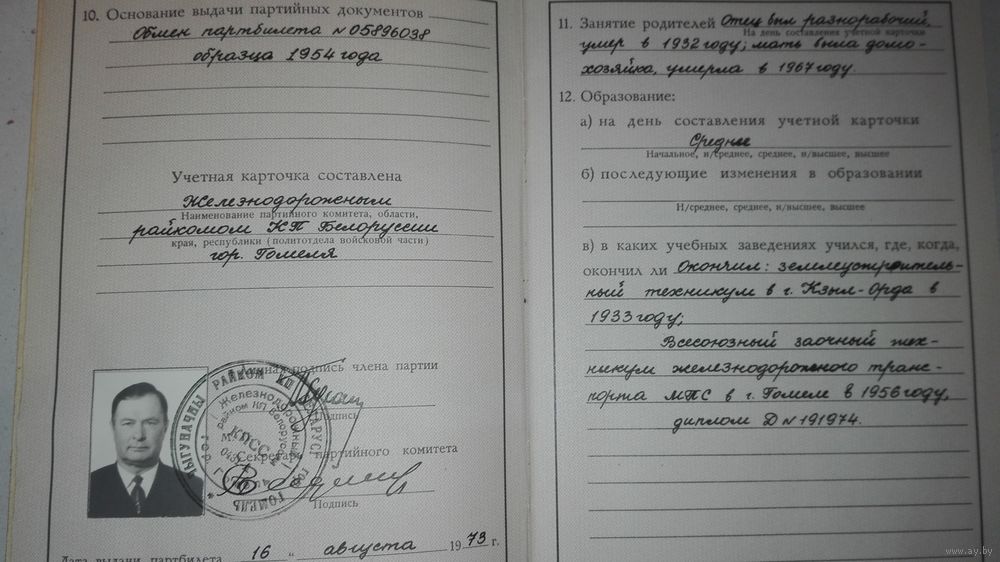 10. Основание выдачи партийных документов
Обмен партбилета № 05896038
образца 1954 года
Учетная карточка составлена
Железнодорожным
Наименование партийного комитета, области,
райкомом КП Белоруссии
края, республики (политотдела войсковой части)
гор. Гомеля
Личная подпись члена партии
Подпись
Секретарь партийного комитета
Подпись
ЧЫГУНАЧНЫ РАЙКОМ КП БЕЛАРУСІ
ГОМЕЛЬ
Железнодорожный
райком КП Белоруссии
КПСС
Дата выдачи партбилета 16 " августа 1973 г.
11. Занятие родителей Отец был разнорабочий,
На день составления учетной карточки
умер в 1932 году; мать была домо-
хозяйка, умерла в 1967 году.
12. Образование:
а) на день составления учетной карточки
Среднее
Начальное, н/среднее, среднее, н/высшее, высшее
б) последующие изменения в образовании
Н/среднее, среднее, н/высшее, высшее
в) в каких учебных заведениях учился, где, когда,
окончил ли Окончил: землеустроитель-
ный техникум в г. Кзыл-Орда в
1933 году;
Всесоюзный заочный тех-
никум железнодорожного транс-
порта МПС в г. Гомеле в 1956 году,
диплом Д № 191974.
www.ay.by